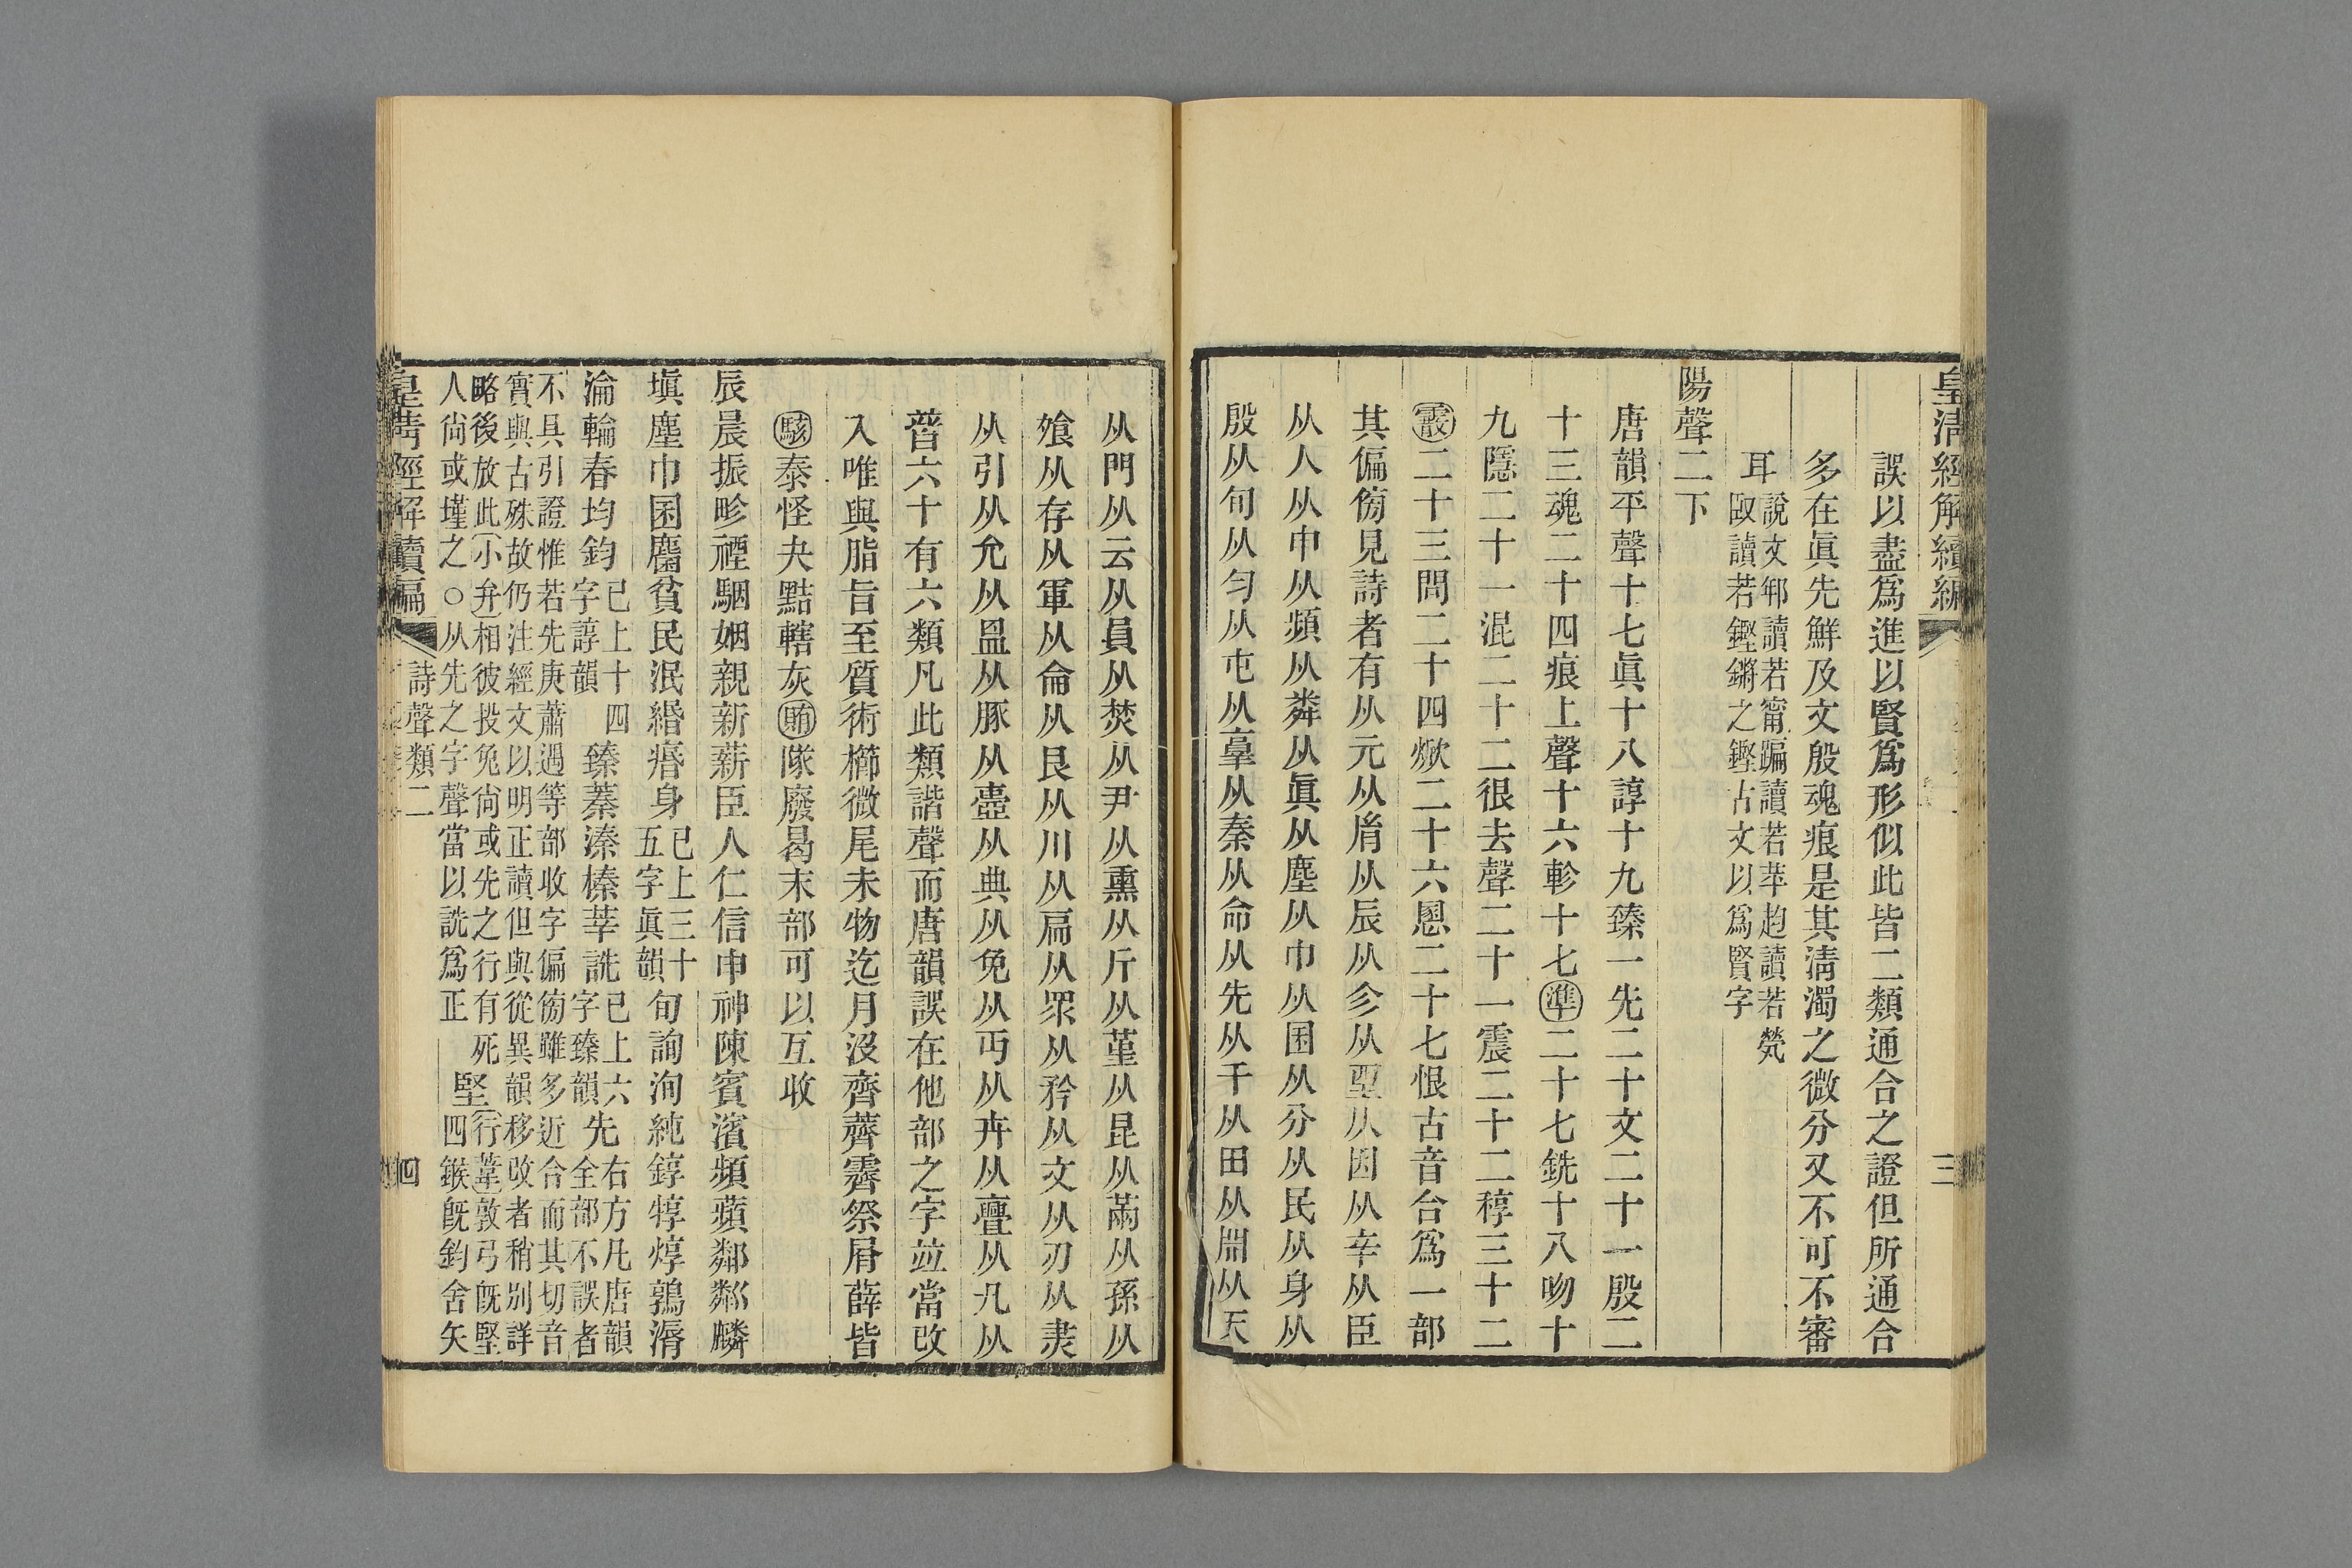 皇清經解續編
三
誤以盡爲進以賢爲形似此皆二類通合之證但所通合
多在眞先鮮及文殷魂痕是其淸濁之微分又不可不審
耳說文郍讀若甯蹁讀若苹趜讀若煢
臤讀若鏗鏘之鏗古文以爲賢字
陽聲二下
唐韻平聲十七眞十八諄十九臻一先二十文二十一殷二
十三魂二十四痕上聲十六軫十七準二十七銑十八吻十
九隱二十一混二十二很去聲二十一震二十二稕三十二
霰二十三問二十四焮二十六慁二十七恨古音合爲一部
其偏傍見詩者有从元从脀从辰从㐱从垔从因从辛从臣
从人从申从頻从粦从眞从塵从巾从囷从分从民从身从
殷从旬从勻从屯从𦎫从秦从命从先从千从田从𣶒从天
从門从云从員从焚从尹从熏从斤从堇从昆从㒼从孫从
飧从存从軍从侖从艮从川从扁从眾从矜从文从刃从㶳
从引从允从昷从豚从壼从典从免从丏从卉从亹从凡从
㬜六十有六類凡此類諧聲而唐韻誤在他部之字竝當改
入唯與脂旨至質術櫛微尾未物迄月沒齊薺霽祭屑薛皆
駭泰怪夬黠轄灰賄隊廢曷末部可以互收
辰晨振畛禋駰姻親新薪臣人仁信申神陳賓濱頻蘋鄰粼麟
塡塵巾囷麕貧民泯緡痻身已上三十五字眞韻旬詢洵純錞犉焞鶉漘
淪輪春均鈞已上十四字諄韻臻蓁溱榛莘詵已上六字臻韻先全部不誤者右方凡唐韻
不具引證惟若先庚蕭過等部收字偏傍雖多近合而其切音
實與古殊故仍注經文以明正讀但與從異韻移改者稍別詳
略後放此小弁相彼投兔尙或先之行有死
人尙或墐之○从先之字聲當以詵爲正堅行葦敦弓旣堅
四鍭旣鈞舍矢
皇淸經解續編
詩聲類二
四